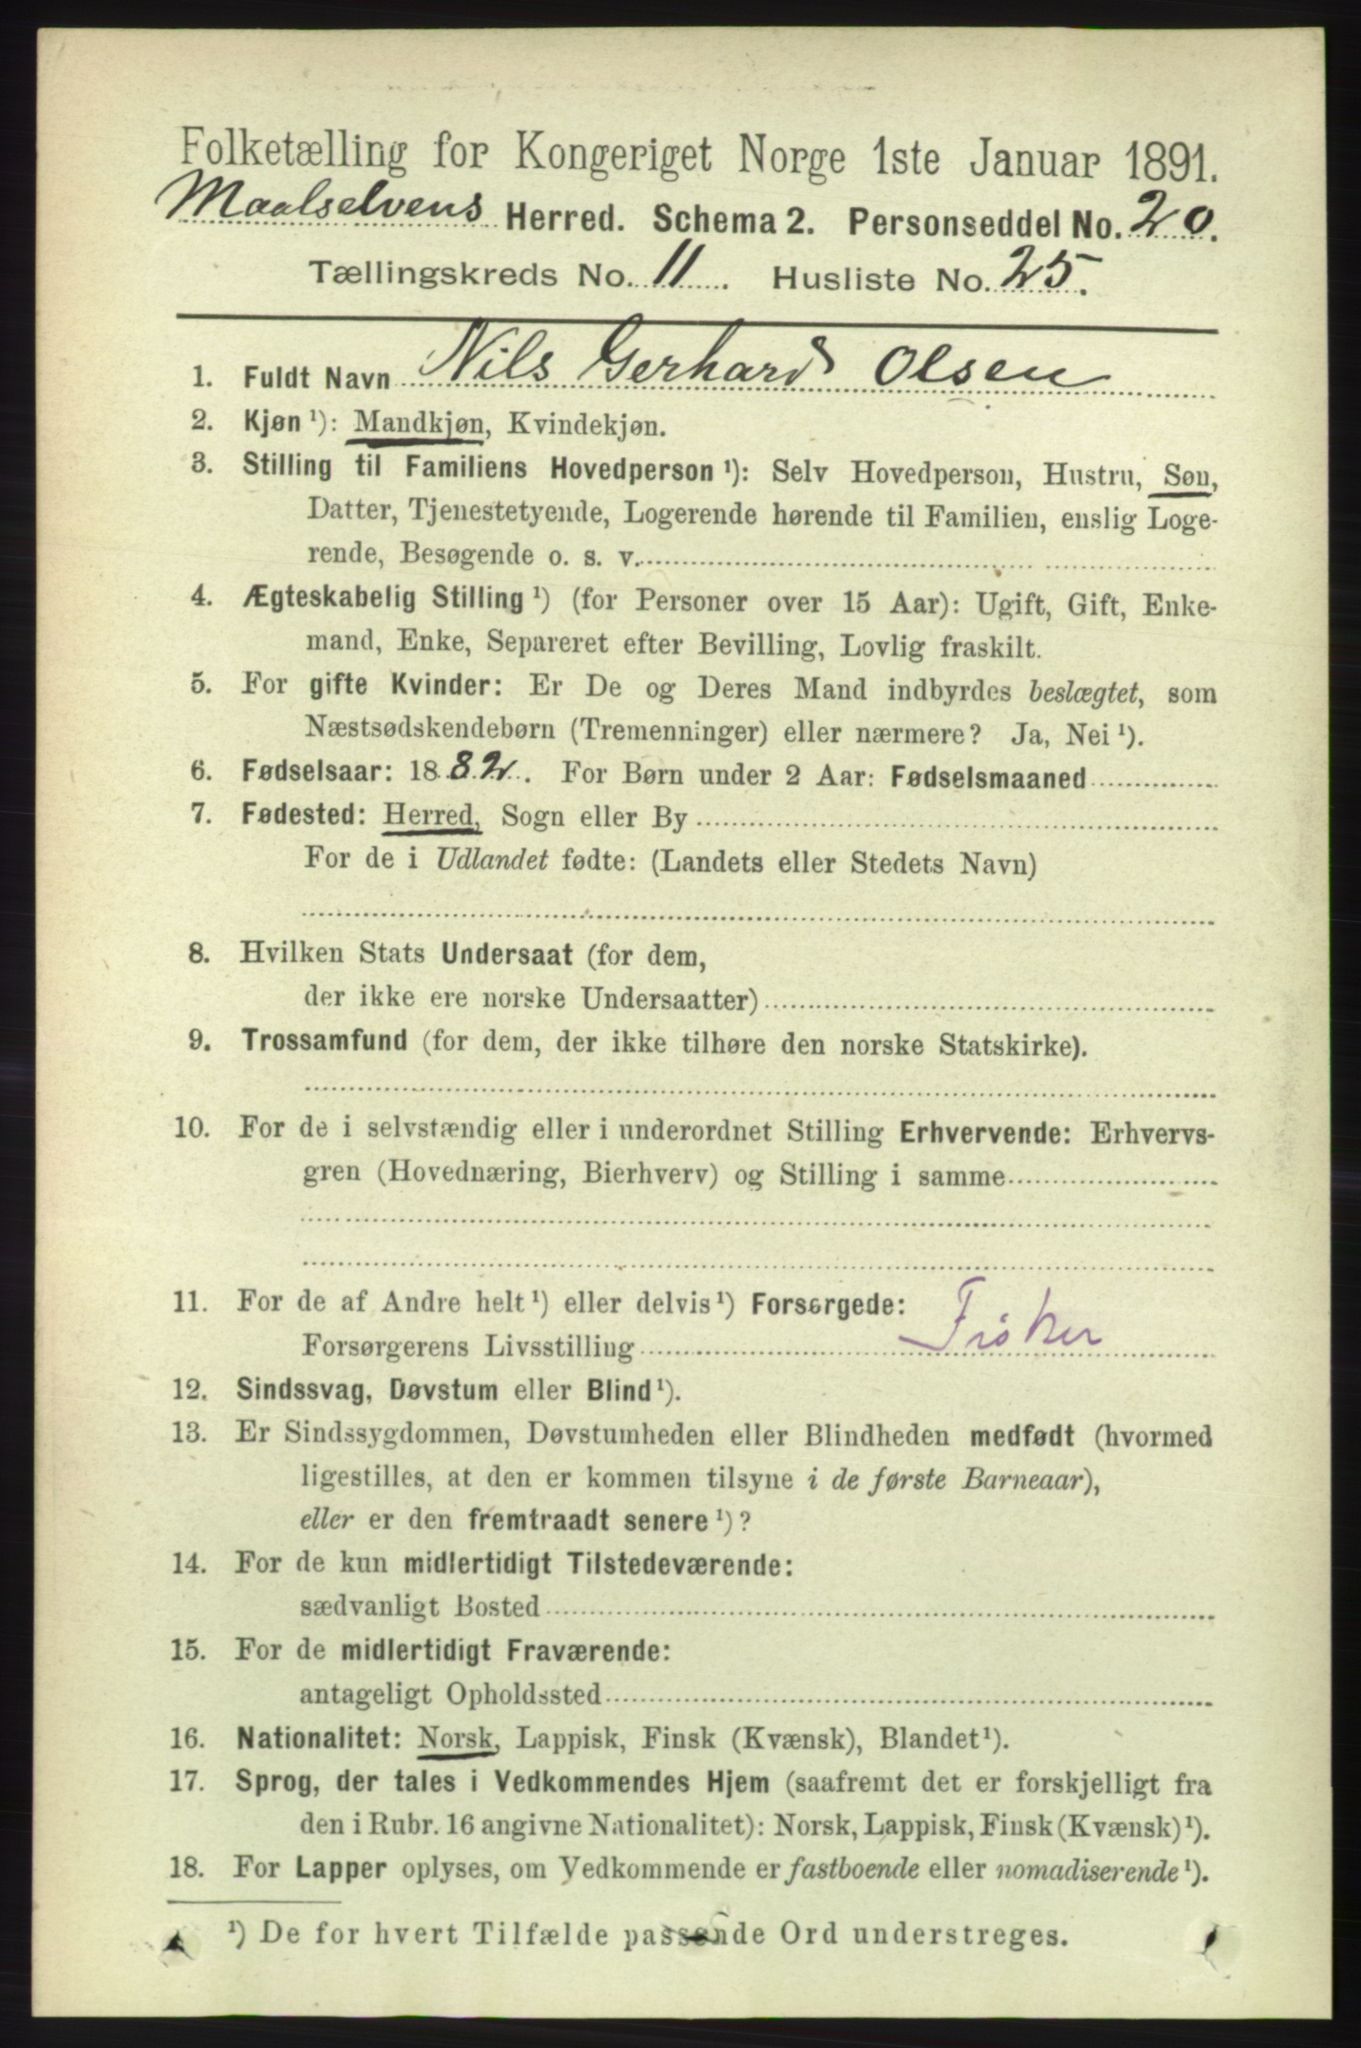 Folketælling for Kongeriget Norge 1ste Januar 1891.
Maalselvens Herred. Schema 2. Personseddel No. 20.
Tællingskreds No. 11. Husliste No. 25.
1. Fuldt Navn Nils Gerhard Olsen
2. Kjøn ¹): Mandkjøn, Kvindekjøn.
3. Stilling til Familiens Hovedperson ¹): Selv Hovedperson, Hustru, Søn,
Datter, Tjenestetyende, Logerende hørende til Familien, enslig Loge-
rende, Besøgende o. s. v.
4. Ægteskabelig Stilling ¹) (for Personer over 15 Aar): Ugift, Gift, Enke-
mand, Enke, Separeret efter Bevilling, Lovlig fraskilt.
5. For gifte Kvinder: Er De og Deres Mand indbyrdes beslægtet, som
Næstsødskendebørn (Tremenninger) eller nærmere? Ja, Nei ¹).
6. Fødselsaar: 1882. For Børn under 2 Aar: Fødselsmaaned
7. Fødested: Herred, Sogn eller By
For de i Udlandet fødte: (Landets eller Stedets Navn)
8. Hvilken Stats Undersaat (for dem,
der ikke ere norske Undersaatter)
9. Trossamfund (for dem, der ikke tilhøre den norske Statskirke).
10. For de i selvstændig eller i underordnet Stilling Erhvervende: Erhvervs-
gren (Hovednæring, Bierhverv) og Stilling i samme
11. For de af Andre helt ¹) eller delvis ¹) Forsørgede:
Forsørgerens Livsstilling Fisker
12. Sindssvag, Døvstum eller Blind ¹).
13. Er Sindssygdommen, Døvstumheden eller Blindheden medfødt (hvormed
ligestilles, at den er kommen tilsyne i de første Barneaar),
eller er den fremtraadt senere ¹)?
14. For de kun midlertidigt Tilstedeværende:
sædvanligt Bosted
15. For de midlertidigt Fraværende:
antageligt Opholdssted
16. Nationalitet: Norsk, Lappisk, Finsk (Kvænsk), Blandet ¹).
17. Sprog, der tales i Vedkommendes Hjem (saafremt det er forskjelligt fra
den i Rubr. 16 angivne Nationalitet): Norsk, Lappisk, Finsk (Kvænsk) ¹).
18. For Lapper oplyses, om Vedkommende er fastboende eller nomadiserende ¹).
¹) De for hvert Tilfælde passende Ord understreges.